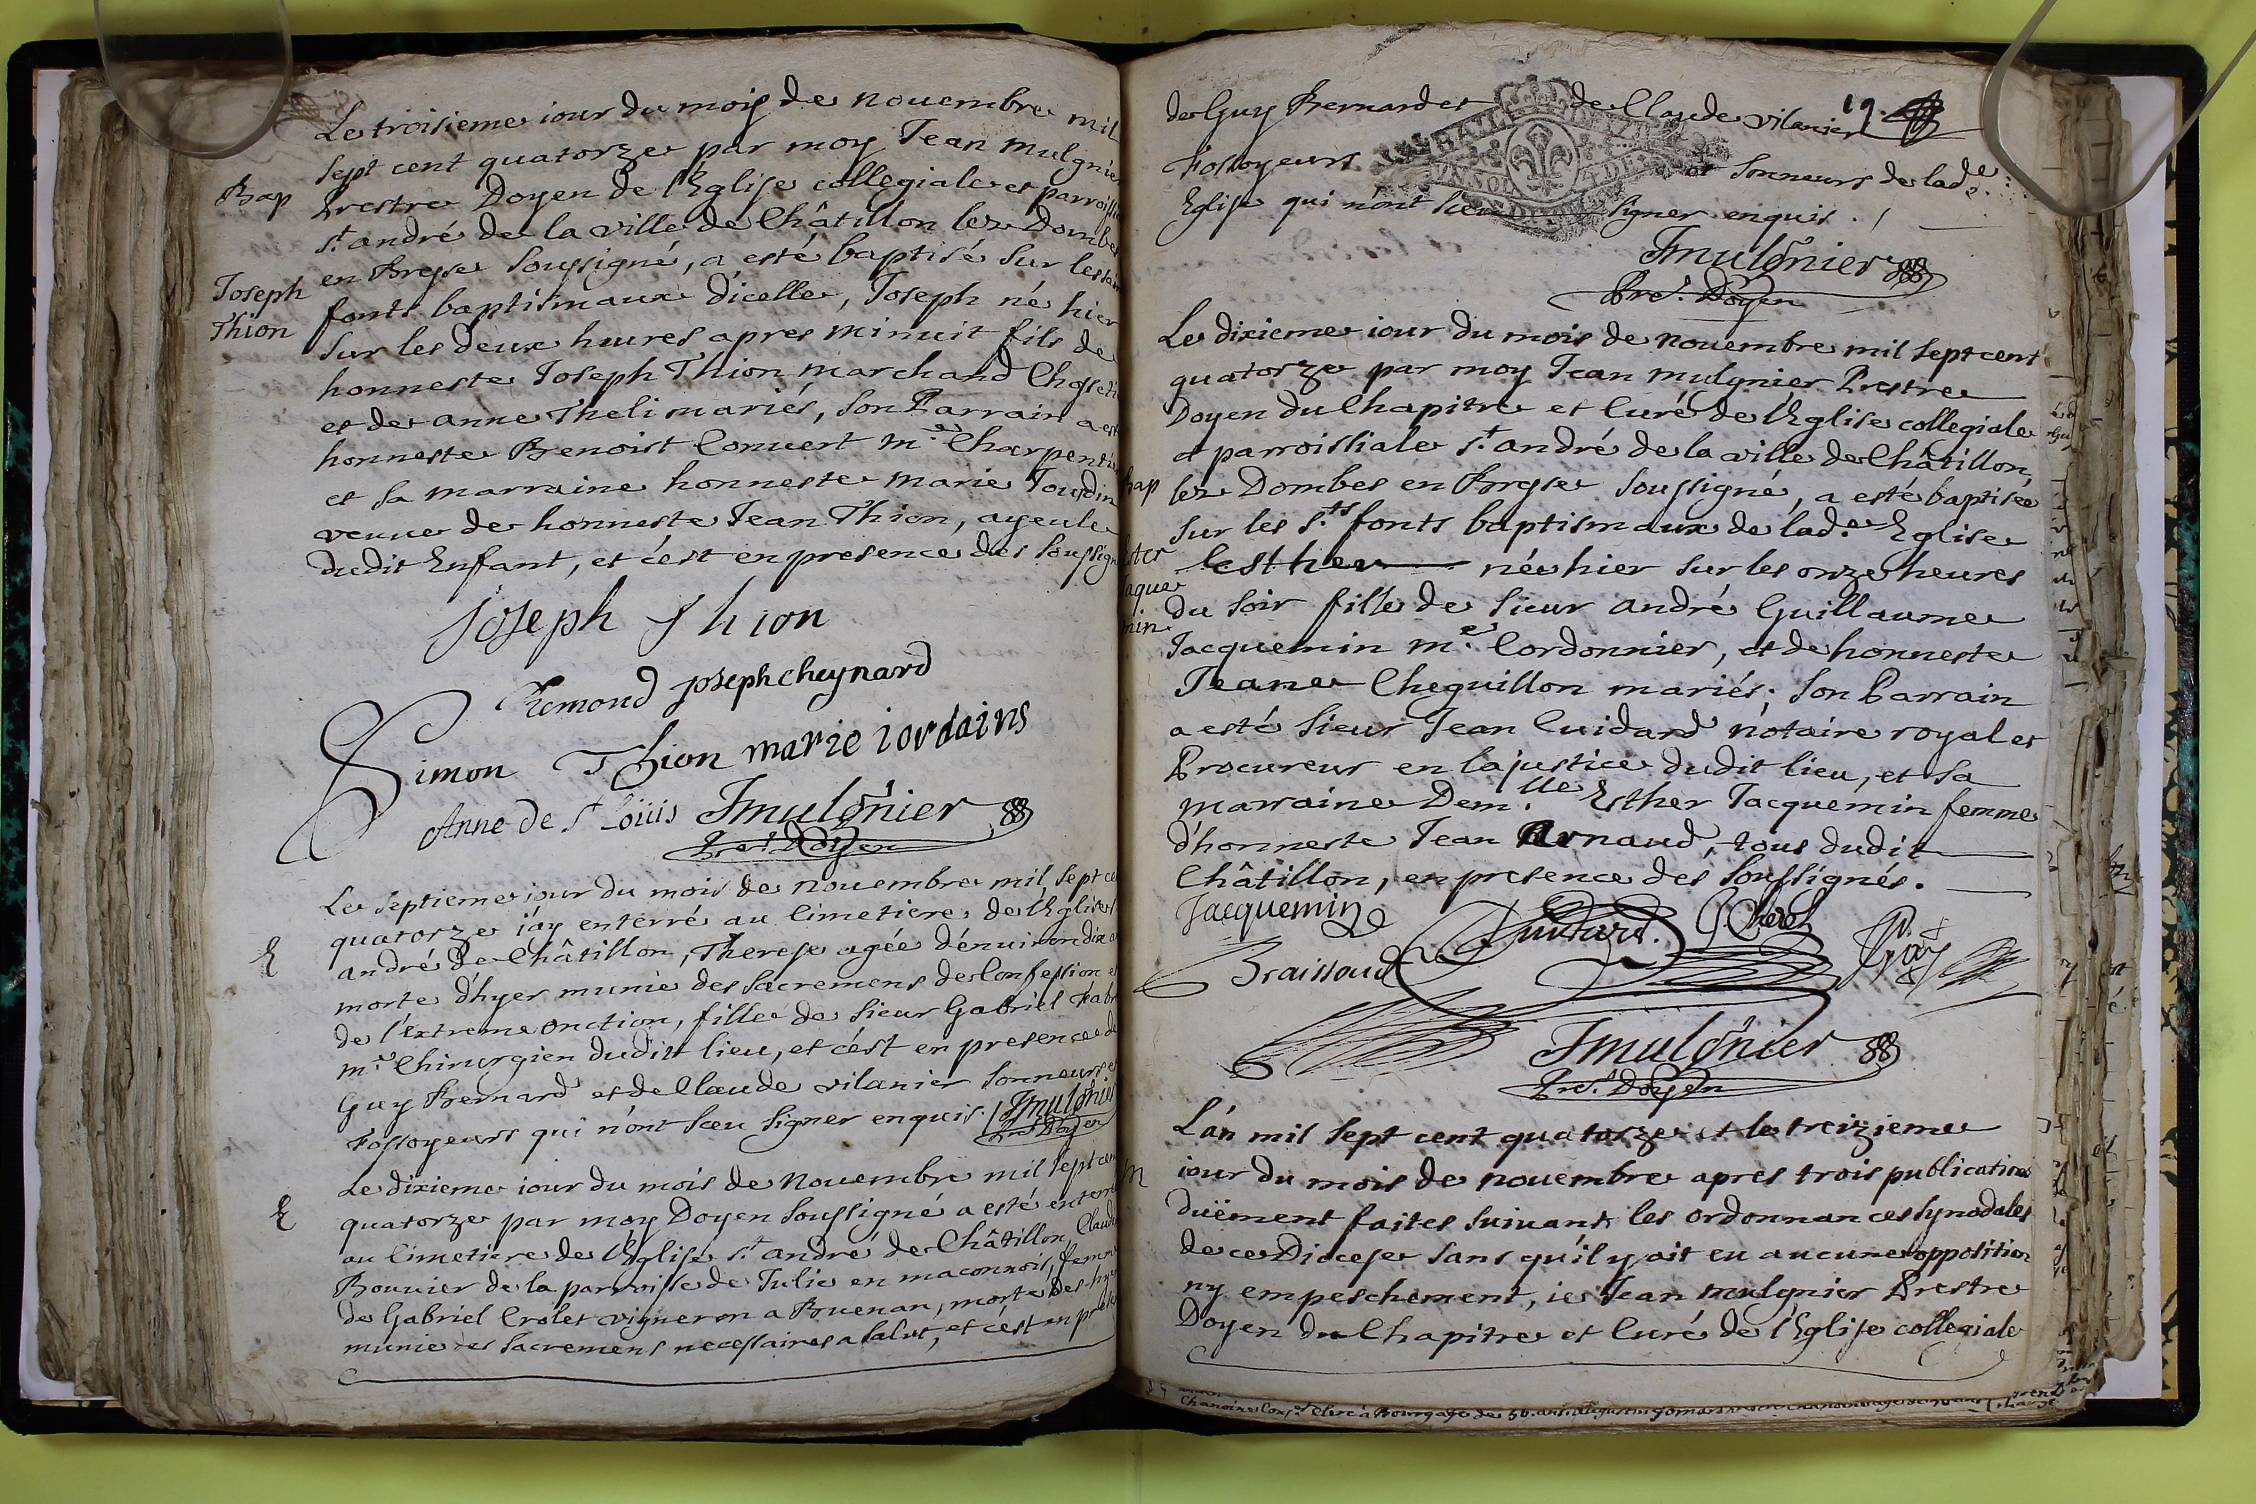 Le troisieme iour du mois de nouembre mil
sept cent quatorze par moy Jean mulgnier
Prestre Doyen de l'Eglise collegiale et parroissiale
st. andré de la ville de Châtillon lez Dombes
en Bresse soussigné, a esté baptisé sur les saints
fonts baptismaux d'icelle, Joseph né hier
sur les deux heures apres minuit fils de
honneste Joseph Thion marchand
et de anne Theli mariés, son Parrain a esté
honneste Benoist Convert me. Charpentier
et sa marraine honneste marie Jourdin
veuve de honneste Jean Thion, ayeule
dudit Enfant, et c'est en presence des soussignés
Bap
Joseph
Thion
joseph thion
Remond joseph cheynard
Simon Thion marie iordains
Anne de st Loüis Jmulgnier
Pre. Doyen
Le septieme iour du mois de nouembre mil sept cent
quatorze i'ay enterré au cimetiere de l'Eglise st
andré de Châtillon, Therese agée d'enuiron dix ans
morte d'hyer munie des sacremens de Confession et
de l'extreme onction, fille de sieur Gabriel Fabr
me. Chirurgien dudit lieu, et c'est en presence de
Guy Bernard et de Claude vilanier sonneurs et
Fossoyeurs qui n'ont sceu signer enquis. / Jmulgnier
Pre. Doyen
E
Le dixieme iour du mois de Nouembre mil sept cent
quatorze par moy Doyen soussigné a esté enterrée
au cimetiere de l'Eglise st. andré de Châtillon, Claudine
Bouuier de la parroisse de Julie en maconnois, femme
de Gabriel Crolet vigneron a Buenan, morte dès hyer
munie des sacremens necessaires a salut, et c'est en presence
E
19.
de Guy Bernard et de Claude vilanier
Fossoyeurs et sonneurs de lade.
Eglise qui n'ont sceu signer enquis. /
Jmulgnier
Pre. Doyen
Le dixieme iour du mois de nouembre mil sept cent
quatorze par moy Jean mulgnier Prestre
Doyen du Chapitre et Curé de l'Eglise collegiale
et parroissiale st. andré de la ville de Châtillon
lez Dombes en Bresse soussigné, a esté baptisée
sur les sts. fonts baptismaux de lade. Eglise
Esther née hier sur les onze heures
du soir fille de sieur andré Guillaume
Jacquemin me. Cordonnier, et de honneste
Jeane Cheguillon mariés; son Parrain
a esté sieur Jean Cuidard notaire royal et
Procureur en la justice dudit lieu, et sa
marraine Demlle. Esther Jacquemin femme
d'honneste Jean Arnaud, tous dudit
Châtillon, en presence des soussignés.
Bap
Ester
Jaque
min
Jacquemin
Cuidard. G Cheval
Braissoud Gay
Jmulgnier
Pre. Doyen
L'an mil sept cent quatorze et le treizieme
iour du mois de nouembre apres trois publications
duëment faites suiuant les ordonnances synodales
de ce Diocese sans qu'il y ait eu aucune opposition
ny empeschement, ie Jean mulgnier Prestre
Doyen du Chapitre et Curé de l'Eglise collegiale
M